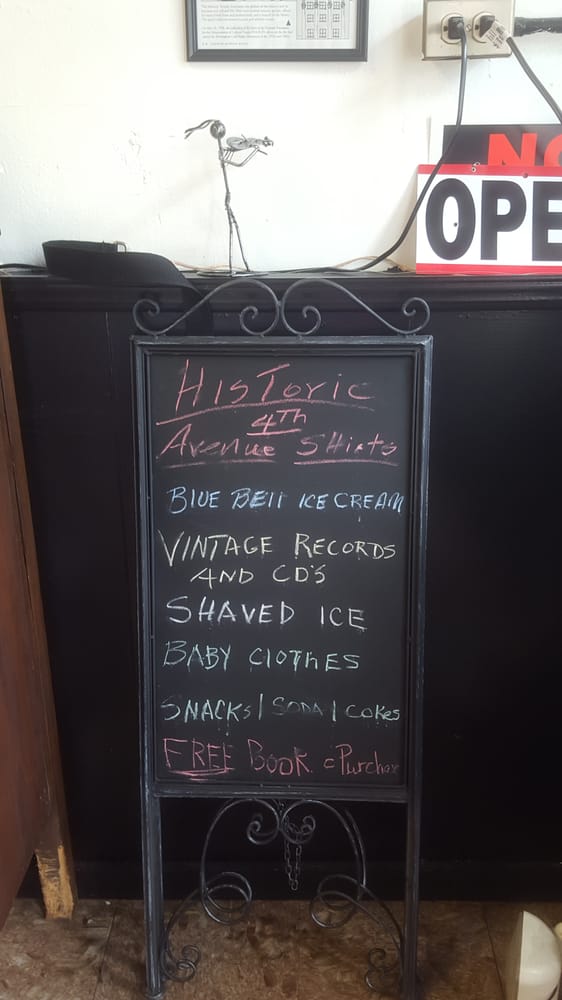 NO
OPE
HISTORIC
4TH
Avenue Shirts
BLUE BEll ICE CREAM
VINTAGE RECORDS
AND CD'S
SHAVED ICE
BABY CLOTHES
SNACKS / SODA / COKES
FREE Book c Purchase